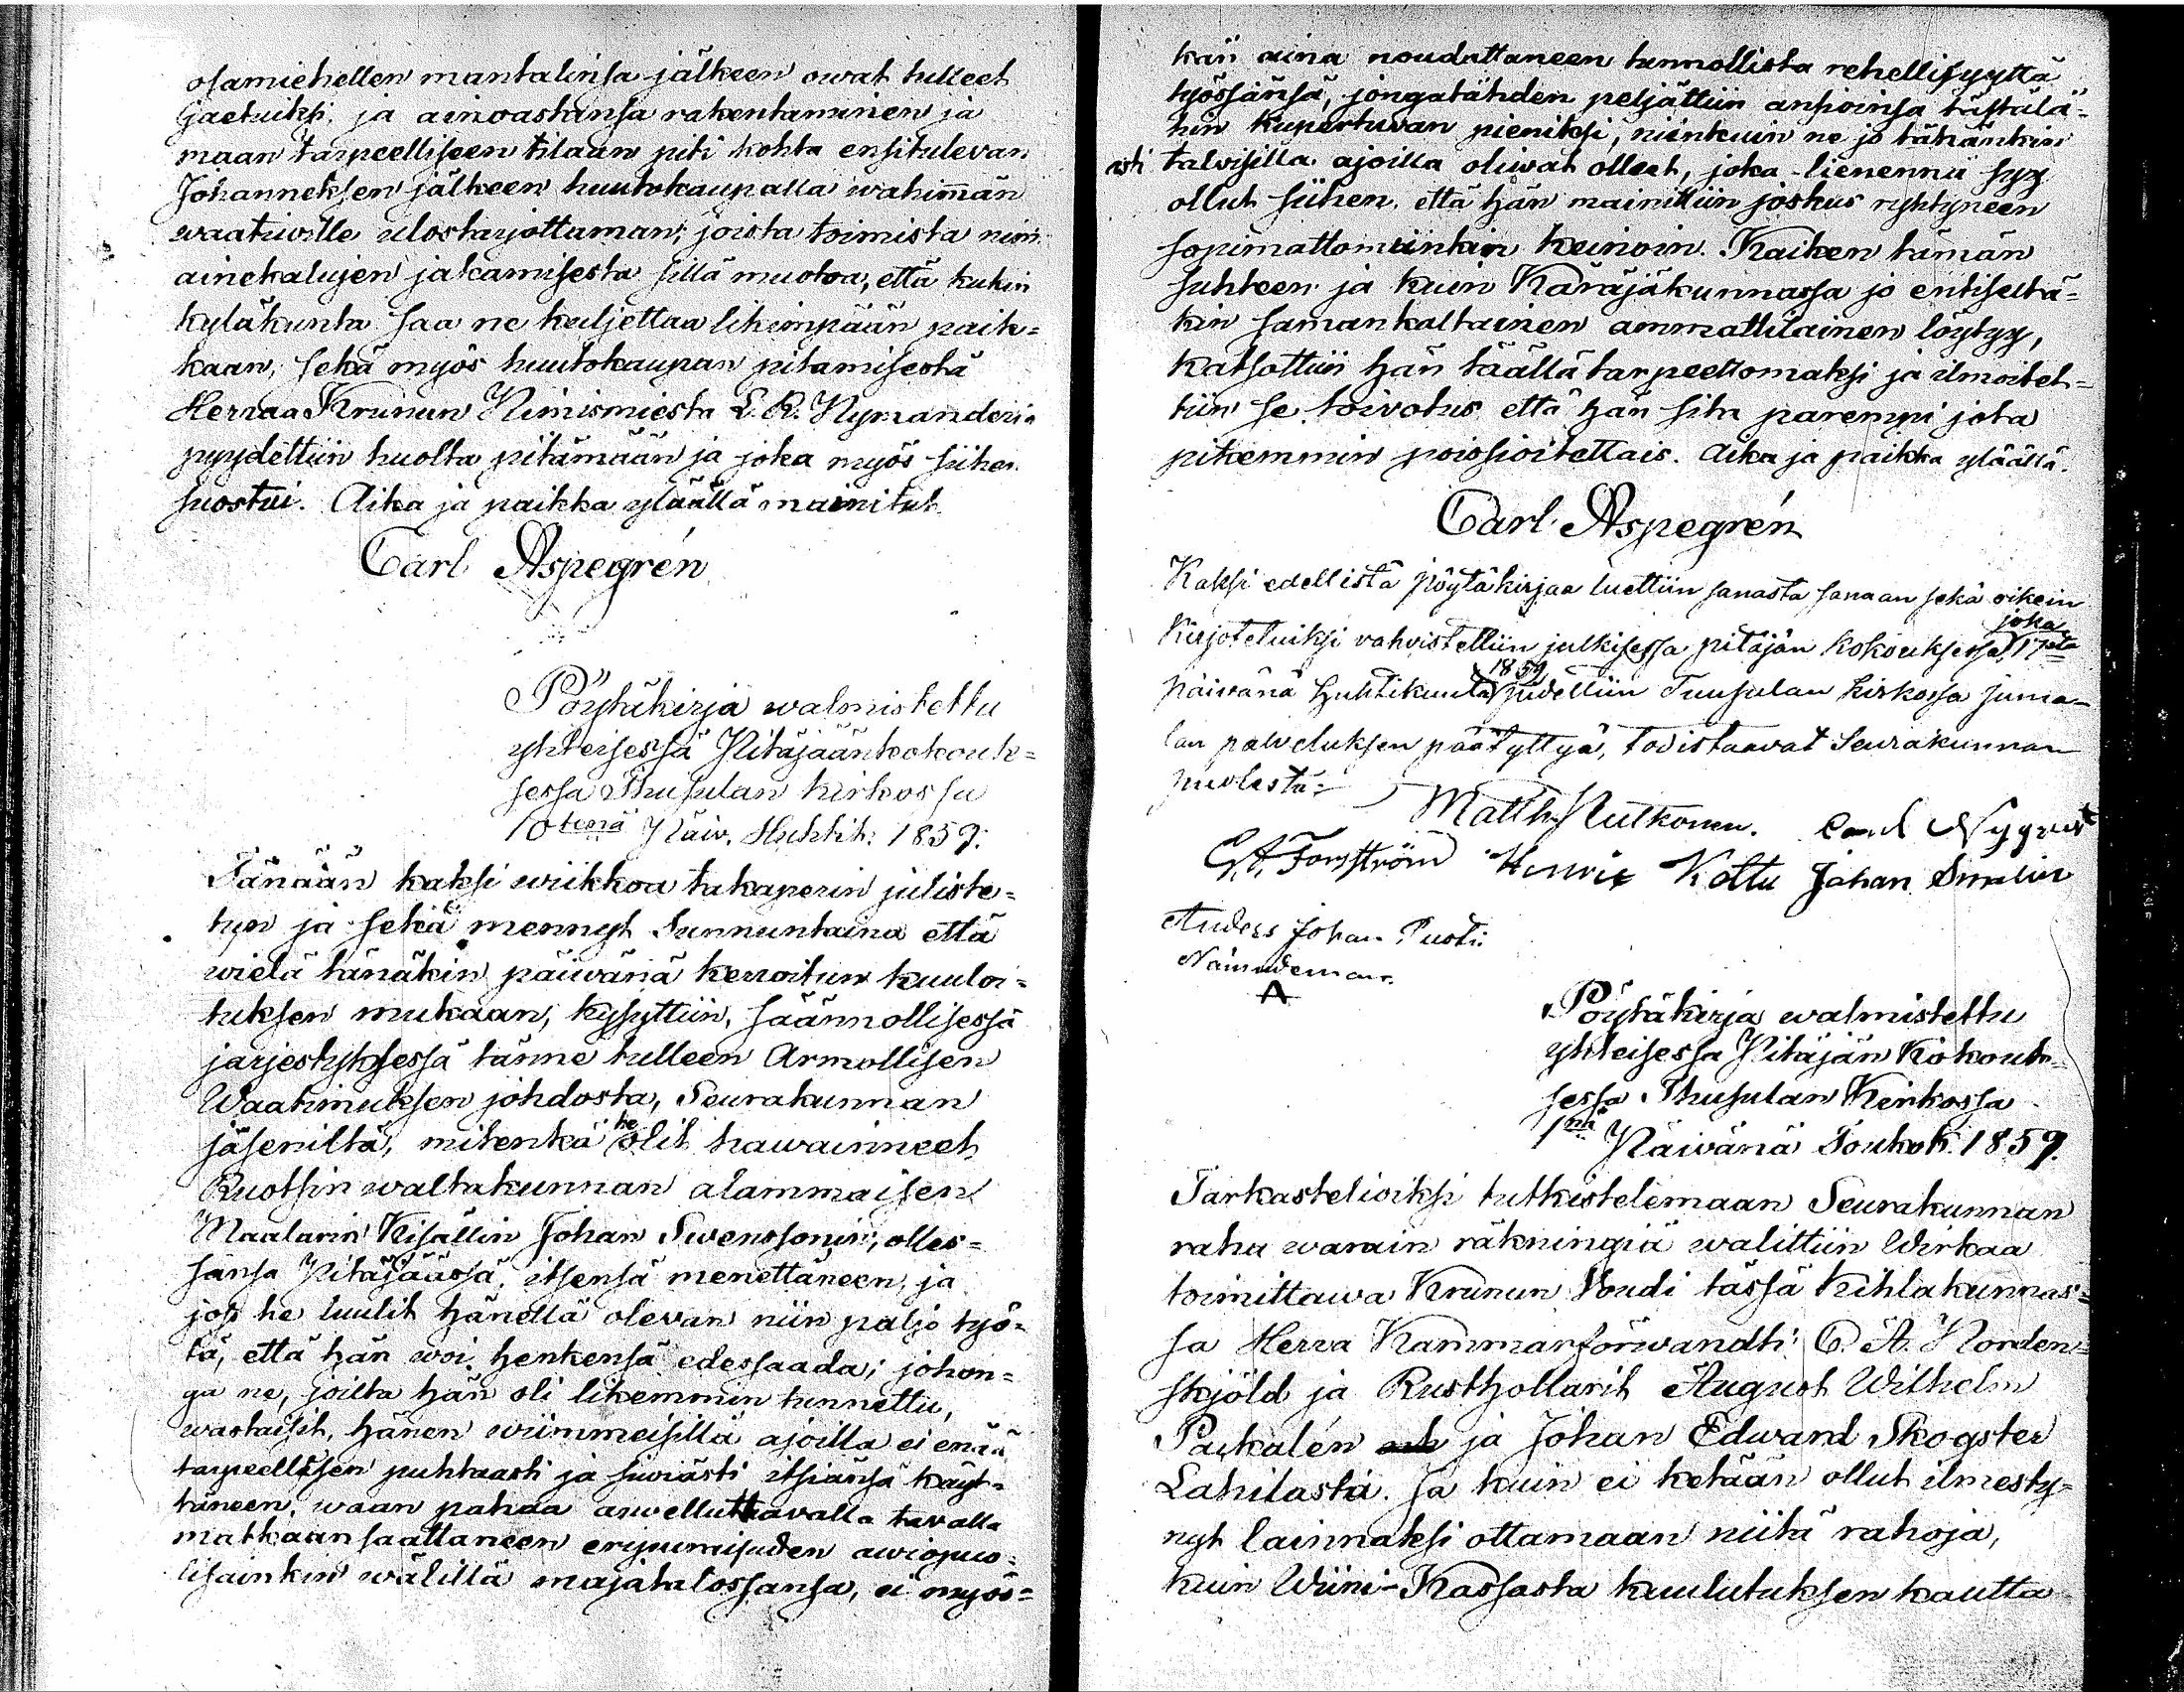 osamiehellen mantalinsa jälkeen owat tulleet
jaetuiksi, ja ainoastansa rakentaminen ja
maan tarpeelliseen tilaan piti kohta ensitulevan
Johanneksen jälkeen huutokaupalla wähimän
waatiwille ulostarjottaman; joista toimista niin
ainekalujen jakamisesta sillä muotoa, että kukin
kyläkunta saa ne kuljettaa likimpään paik=
kaan, sekä myös huutokaupan pitämisestä
Herraa Krunun Nimismiestä L. R. Nymanderia
pyydettiin huolta pitämään ja joka myös siihen
suostui. Aika ja paikka yläällä mainitut.
Carl Aspegrén
Pöytäkirja walmistettu
yhteisessä Pitäjäänkokouk=
sessa Thusulan kirkossa
10tenä Päiv. Huhtik: 1859.
Tänään kaksi wiikkoa takaperin juliste=
tun ja sekä mennyt Sunnuntaina että
wielä tänäkin päiwänä kerroitun kuuloi=
tuksen mukaan, kysyttiin, säännollisessä
järjestyksessä tänne tulleen Armollisen
Waatimuksen johdosta, Seurakunnan
jäseniltä, mitenkä he olit hawainneet
Ruotsin waltakunnan alammaisen
Maalarin Kisällin Johan Swenssonin, olles=
sansa Pitäjäässä, itsensä menettäneen, ja
jos he luulit hänellä olevan niin paljo työ=
tä, että hän woi henkensä edessaada; johon=
ga ne, joilta hän oli likemmin tunnettu,
wastaisit, hänen wiimmeisillä ajoilla ei enää
tarpeellisen puhtaasti ja siwiästi itsiänsä käyt=
täneen, waan pahaa arwelluttavalla tavalla
matkaan saattaneen eripuraisuden awiopuo=
lisainkin wälillä majatalossansa, ei myös=
kän aina noudattaneen tunnollista rehellisyyttä
työssänsä, jongatähden peljättiin ansioinsa tästälä=
hin kupertuvan pieniksi, niinkuin ne jo tähänkin
asti talvisilla ajoilla oliwat olleet, joka lienennii syy
ollut siihen, että hän mainittiin joskus ryhtyneen
sopimattomiinkin keinoin. Kaiken tämän
suhteen ja kuin Käräjäkunnassa jo entiseltä=
kin samankaltainen ammattilainen löytyy,
katsottiin hän täällä tarpeettomaksi ja ilmoitet=
tiin se toivotus että hän sitä parempi jota
pikemmin poissioitettais. Aika ja paikka yläällä.
Carl Aspegrén
Kaksi edellistä pöytäkirjaa luettiin sanasta sanaan sekä oikein
kirjotetuiksi vahvistettiin julkisessa pitäjän kokouksessa, joka 17ta
päivänä Huhtikuuta 1859 pidettiin Tuusulan kirkossa juma=
lan palveluksen päätyttyä, todistaavat Seurakunnan
puolesta:
Matth. Hutkonen. Carl Nygrist
G. A. Forsström Henric Kottu Johan Smalin
Anders Johan Pusti
Nämndeman.
Pöytäkirja walmistettu
yhteisessa Pitäjän Kokouk=
sessa Thusulan Kirkossa
1nä Päivänä Toukok. 1859.
Tarkastelioiksi tutkistelemaan Seurakunnan
raha warain räkningiä walittiin Wirkaa
toimittawa Krunun Voudi tässä kihlakunnas=
sa Herra Kammarförwandti C. A. Norden=
skjöld ja Rusthollarit August Wilhelm
Paikalén ja Johan Edward Skogster
Lahilasta. Ja kuin ei ketään ollut ilmesty=
nyt lainnaksi ottamaan niitä rahoja,
kuin Wiini-Kassasta kuulutuksen kautta